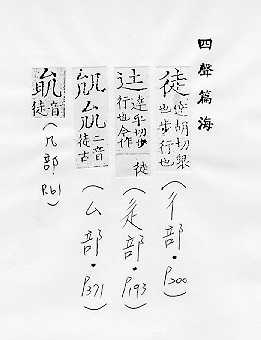 四聲篇海
徒 胡切
也步行也
（彳部・P200）
辻 達乎切步
行也今作徒
（辵部・P193）
二音
徒古
（厶部・P371）
音
徒
（几部 P.61）